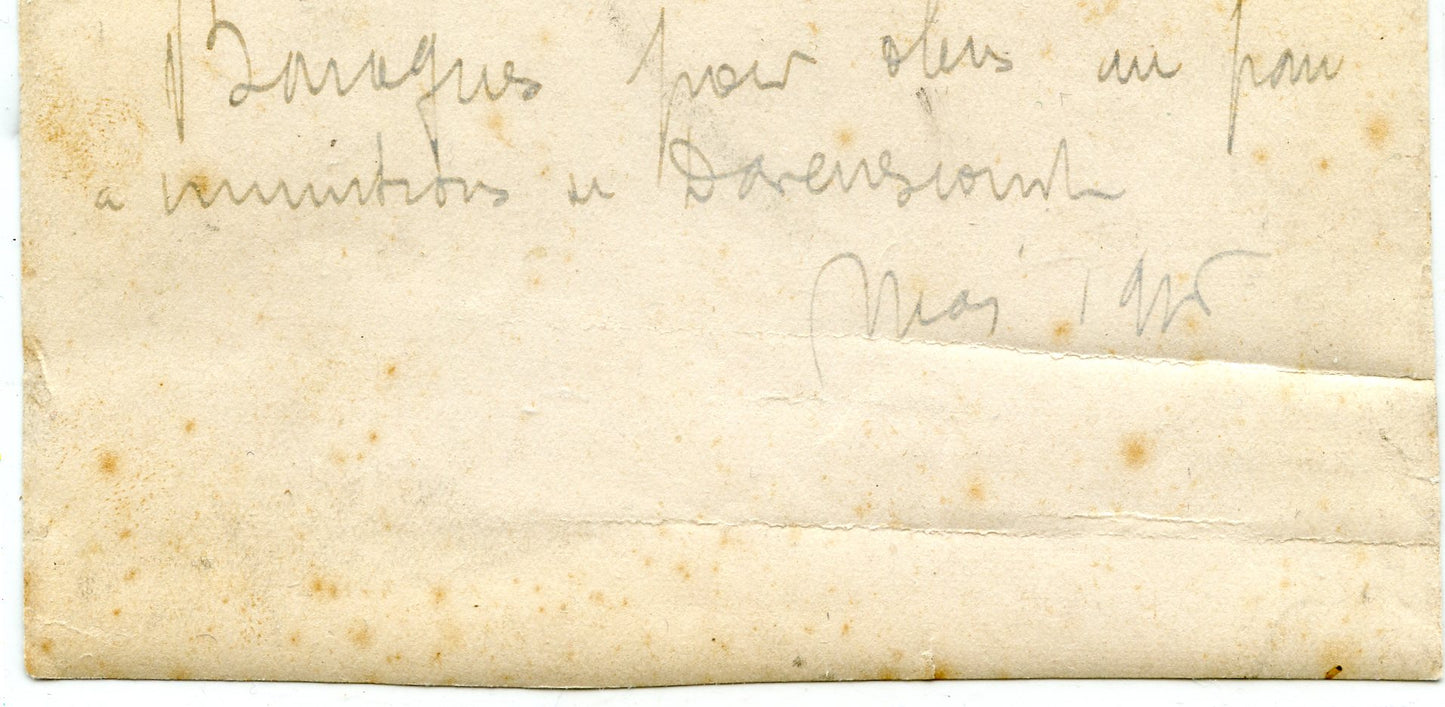 Baraques pour obus au parc
a munitions de Davenescourt
Mai 1915